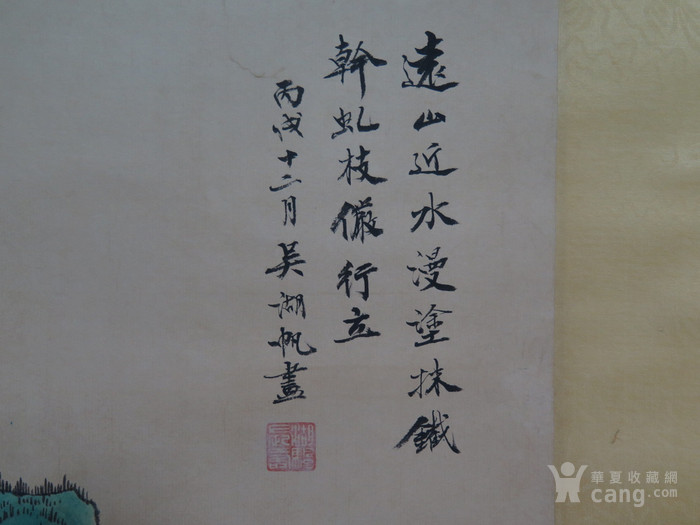 遠山近水漫塗抹鐵
幹虬枝儼行立
丙戌十二月吴湖帆畫
華夏收藏網
cang.com